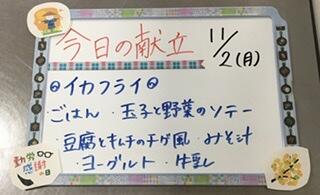 今日の献立
11/2(月)
◎イカフライ◎
ごはん ・玉子と野菜のソテー
・豆腐とキムチのチゲ風 ・みそ汁
・ヨーグルト ・牛乳
勤労感謝の日